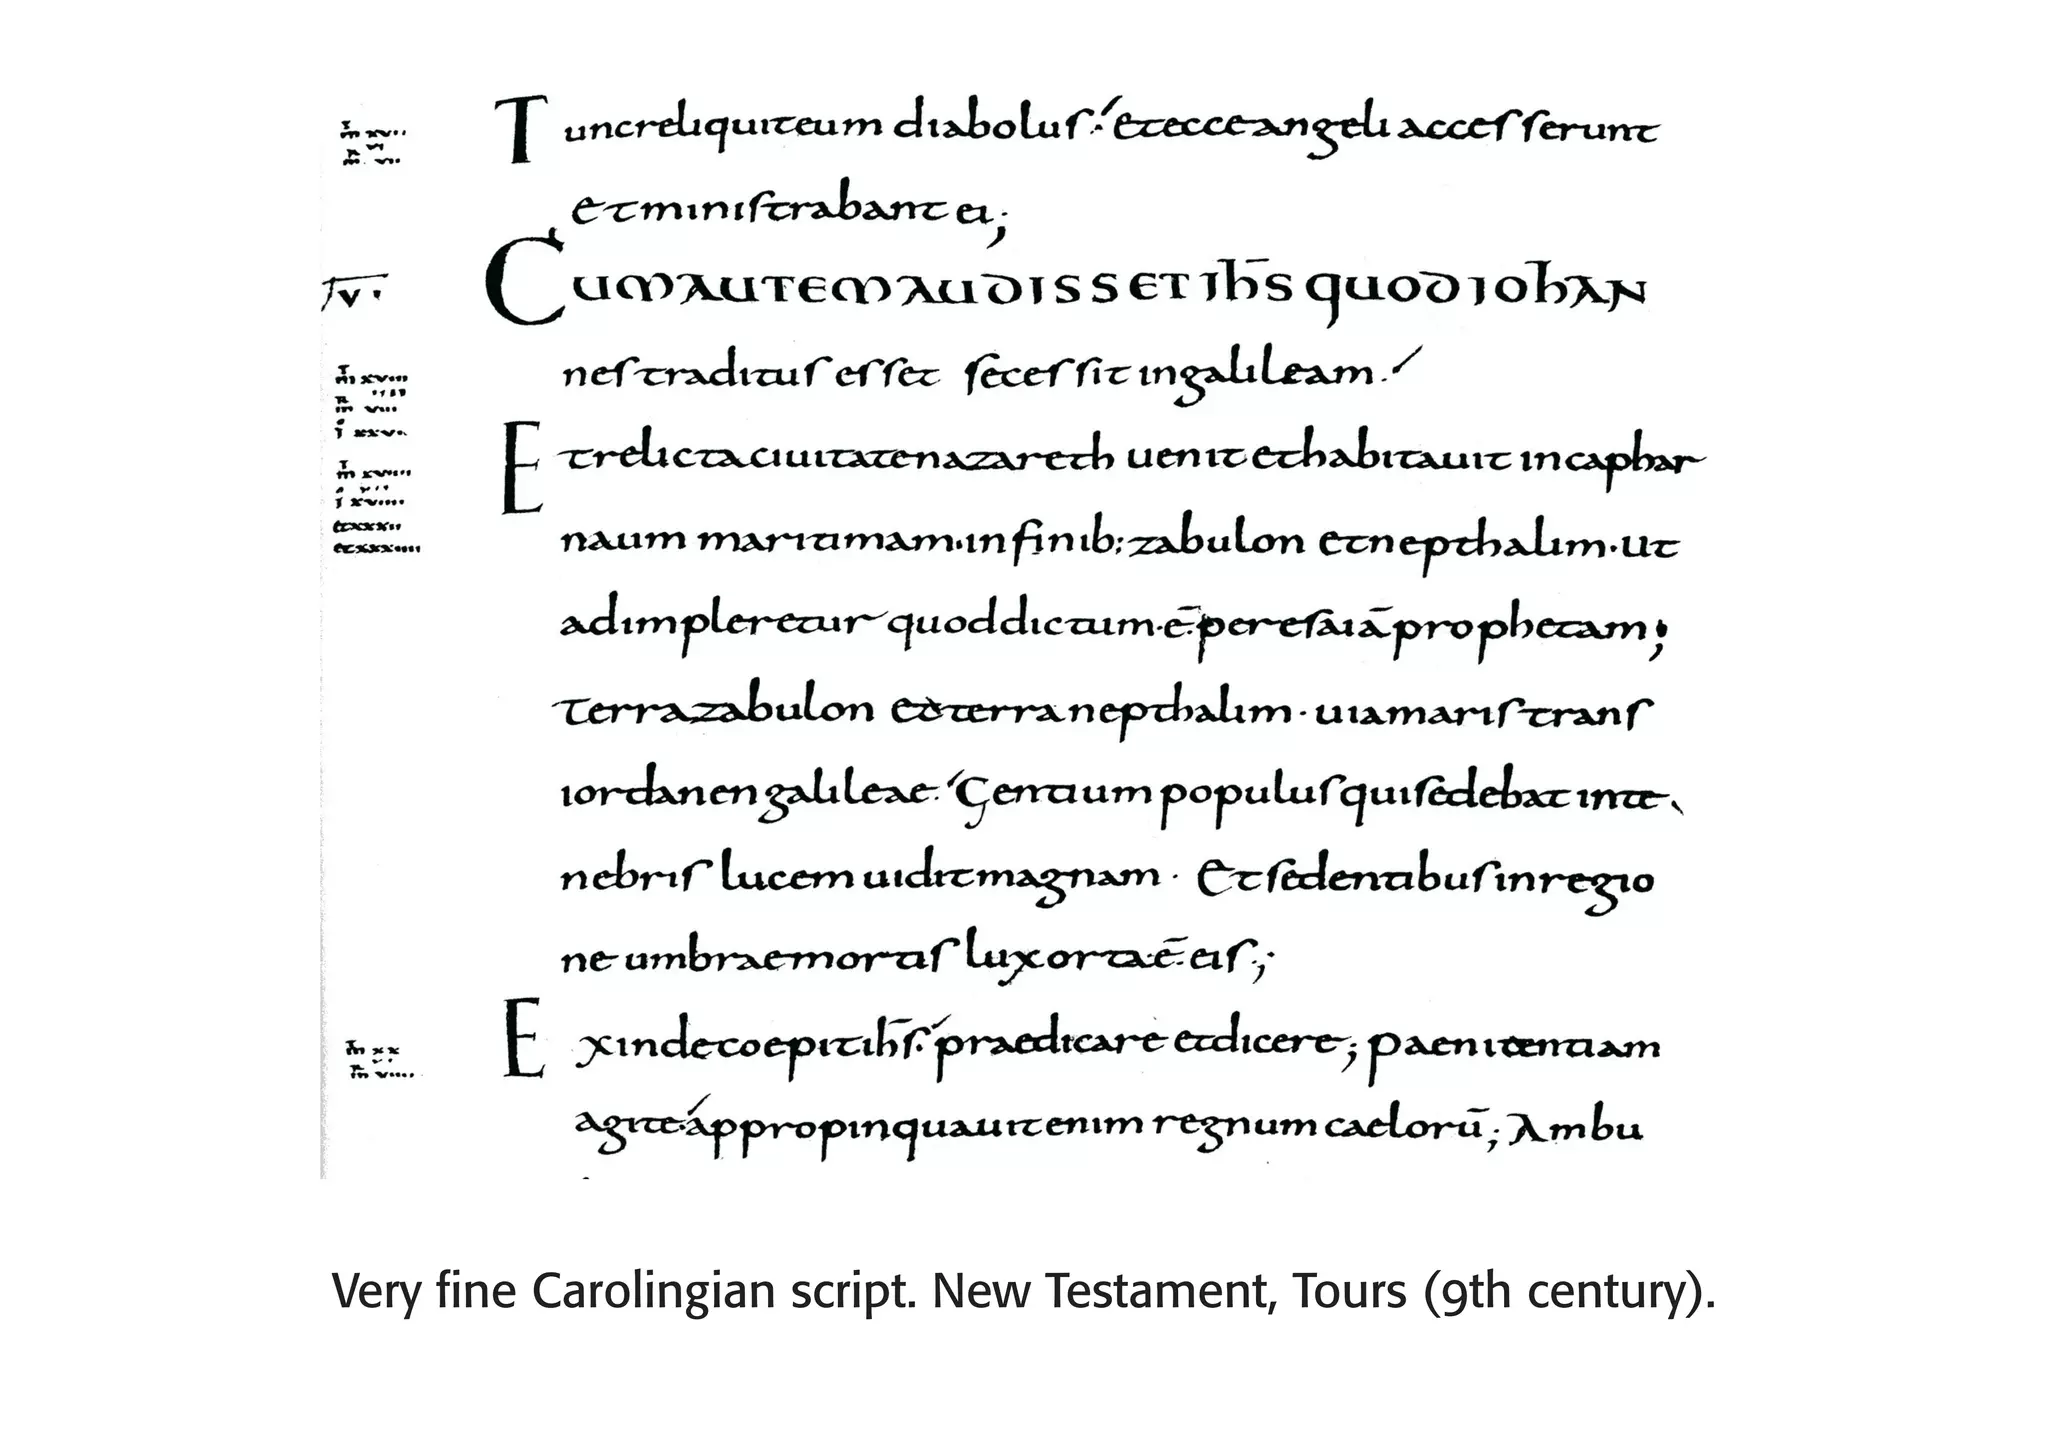 Tuncreliquiteum diabolus:́ etecceangeli accesserunt
etministrabant ei;
CUMAUTEMAUDISSET Ih̅S QUOD IOhAN
nestraditus esset secessit ingalileam.
Etrelictaciuitatenazareth uenit ethabitauit incaphar
naum maritimam·infinib; zabulon etnepthalim·ut
adimpleretur quoddictum·ē·peresaiāprophetam;
terrazabulon et terranepthalim·uiamaris trans
iordanengalileae. Gentium populusquisedebat inte
nebris lucem uiditmagnam· Etsedentibusinregio
ne umbraemortis luxorta·ē·eis;
Exindecoepit ih̅s praedicare etdicere; Paenitentiam
agite áppropinquauitenim regnum caelorū; Ambu
Very fine Carolingian script. New Testament, Tours (9th century).